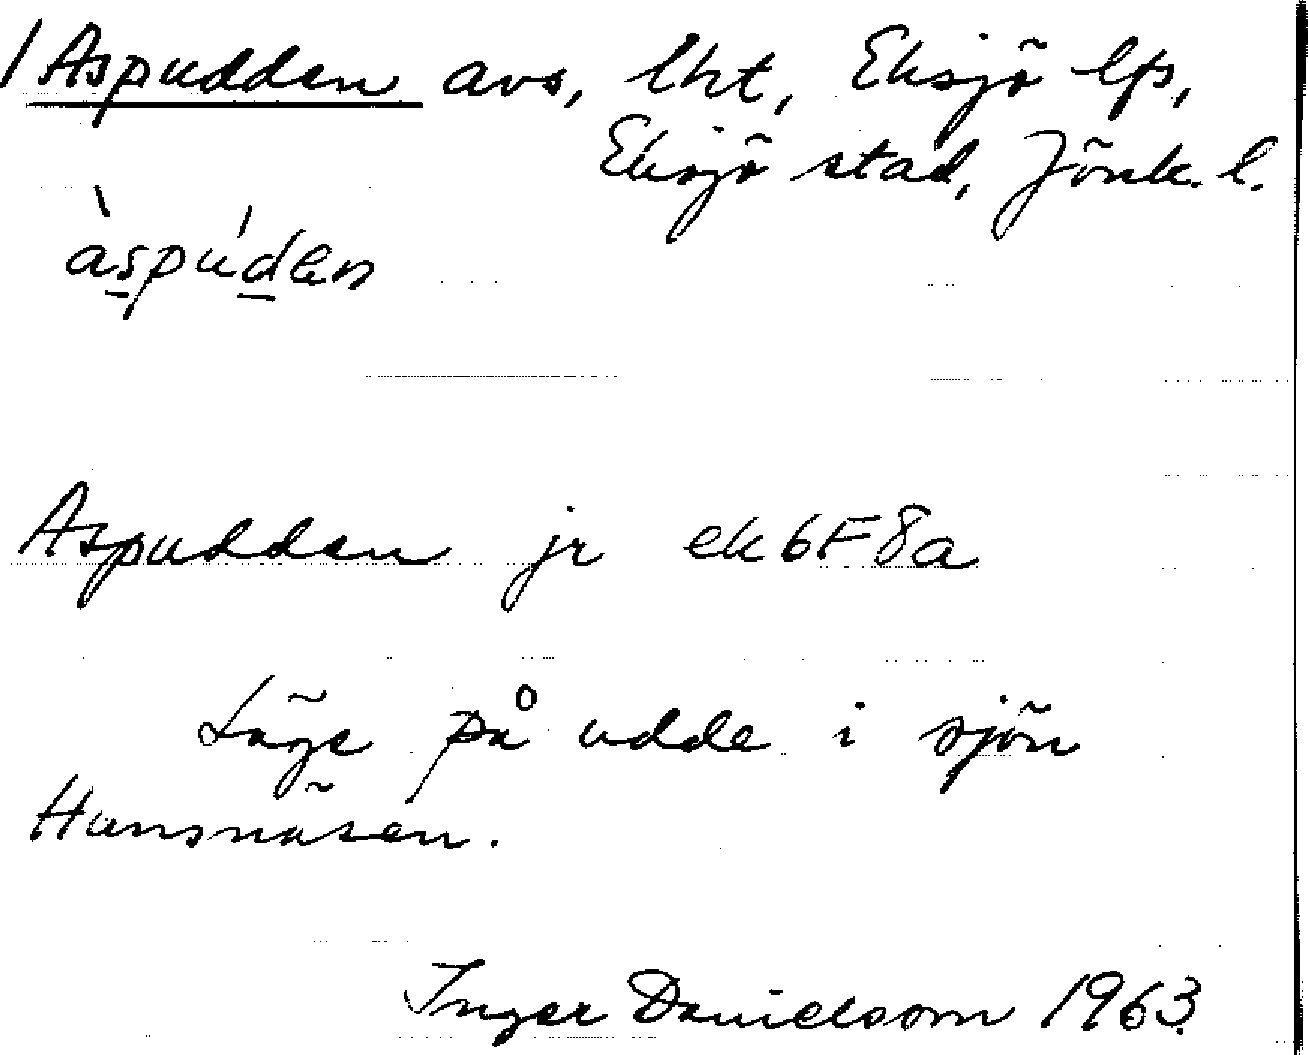 / Aspudden avs, lht, Eksjö lfs,
Eksjö stad, Jönk. l.
àspúden
Aspudden jr ek 6F8a
Läge på udde i sjön
Hunsnäsen.
Inger Danielsson 1963